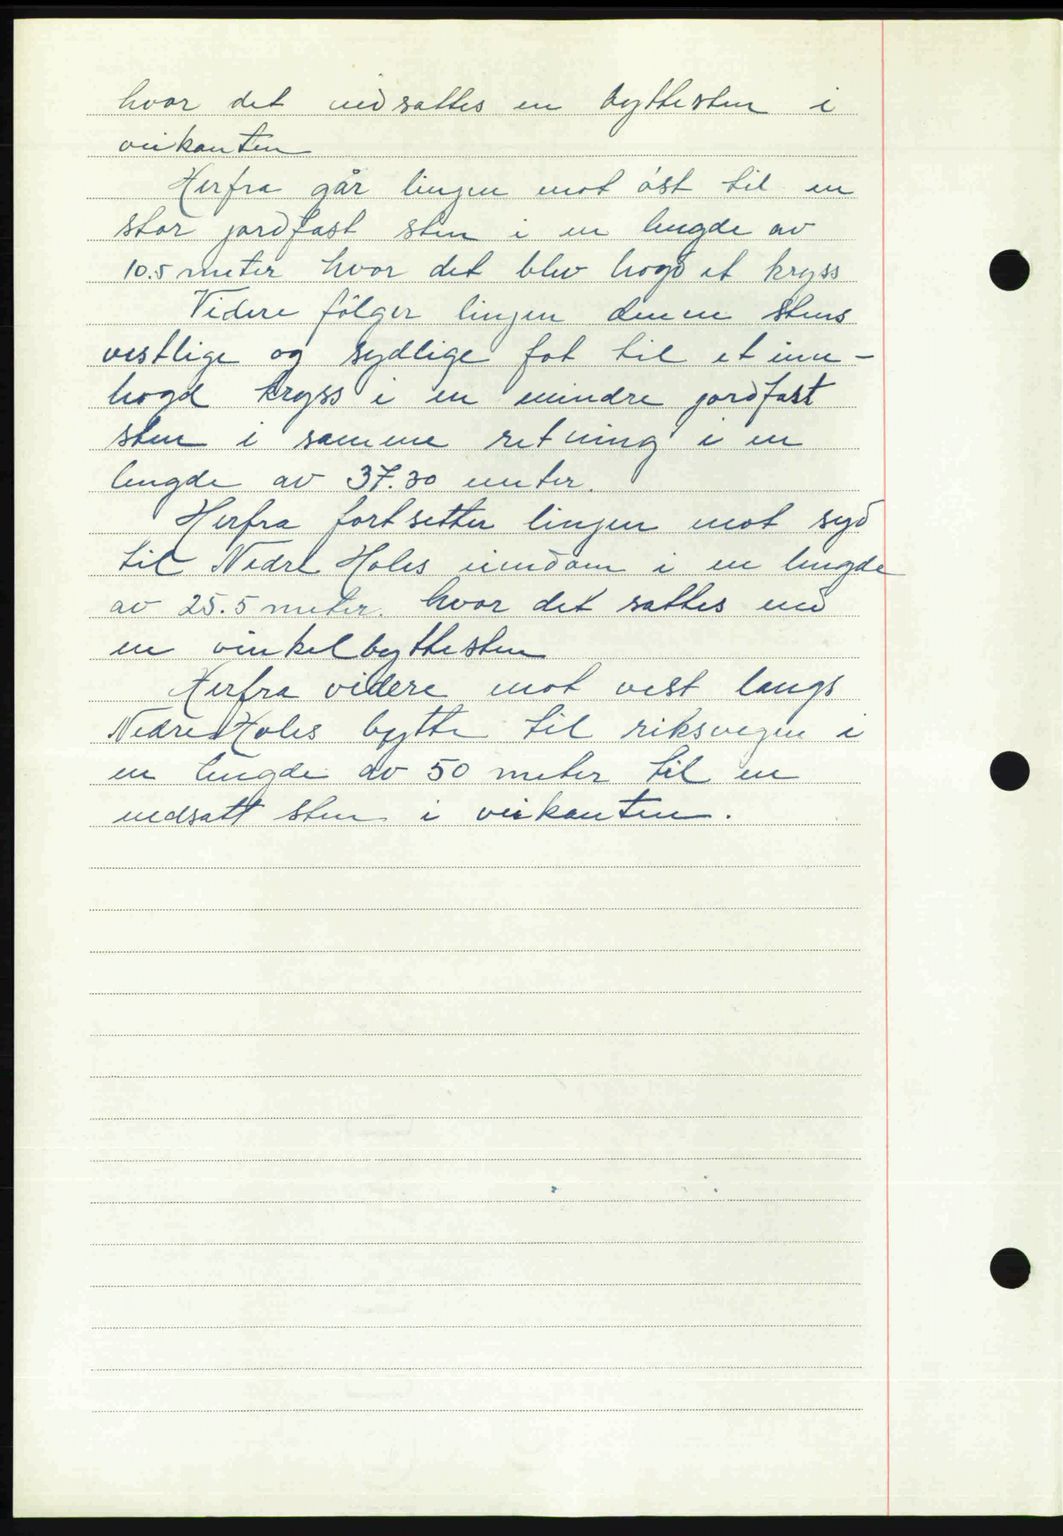 hvor det nedsattes en byttesten i
veikanten
Herfra går linjen mot øst til en
stor jordfast sten i en lengde av
10.5 meter hvor det blev hogd et kryss
Videre følger linjen denne stens
vestlige og sydlige fot til et inn-
hogd kryss i en mindre jordfast
sten i samme retning i en
lengde av 37.30 meter.
Herfra fortsetter linjen mot syd
til Nedre Holes eiendom i en lengde
av 25.5 meter. hvor det sattes ned
en vinkelbyttesten
Herfra videre mot vest langs
Nedre Holes bytte til riksvegen i
en lengde av 50 meter til en
nedsatt sten i veikanten.